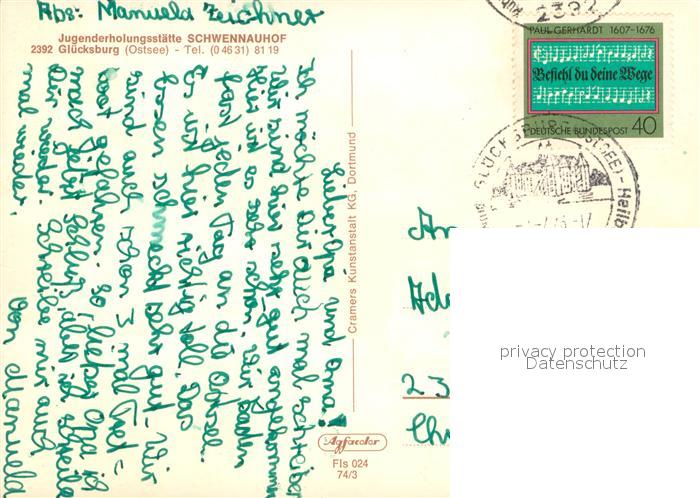 Abs: Manuela Zeichner
Jugenderholungsstätte SCHWENNAUHOF
2392 Glücksburg (Ostsee) - Tel. (0 46 31) 81 19
Lieber Opa und Oma!
Ich möchte dir auch mal schreiben
Wir sind hier recht gut angekommen
Hier ist es sehr schön. Wir baden
fast jeden Tag an die Ostsee.
Es ist hier richtig toll. Das
Essen schmeckt sehr gut. Wir
sind auch schon 3 mal Tret-
boot gefahren. So, lieber Opa ich
mach jetzt Schluß, aber ich schreibe
dir wieder. Schreibe mir auch
mal wieder.
von Manuela
Cramers Kunstanstalt KG, Dortmund
Agfacolor
Fls 024
74/3
2392
PAUL GERHARDT 1607-1676
Befiehl du deine Wege
DEUTSCHE BUNDESPOST 40
GLÜCKSBURG (OSTSEE)
An
Ade
23
Chr
privacy protection
Datenschutz